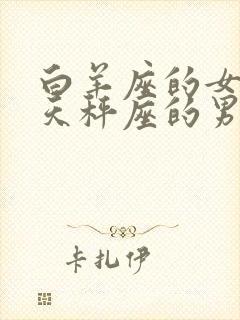 白羊座的女
天秤座的男
卡扎伊